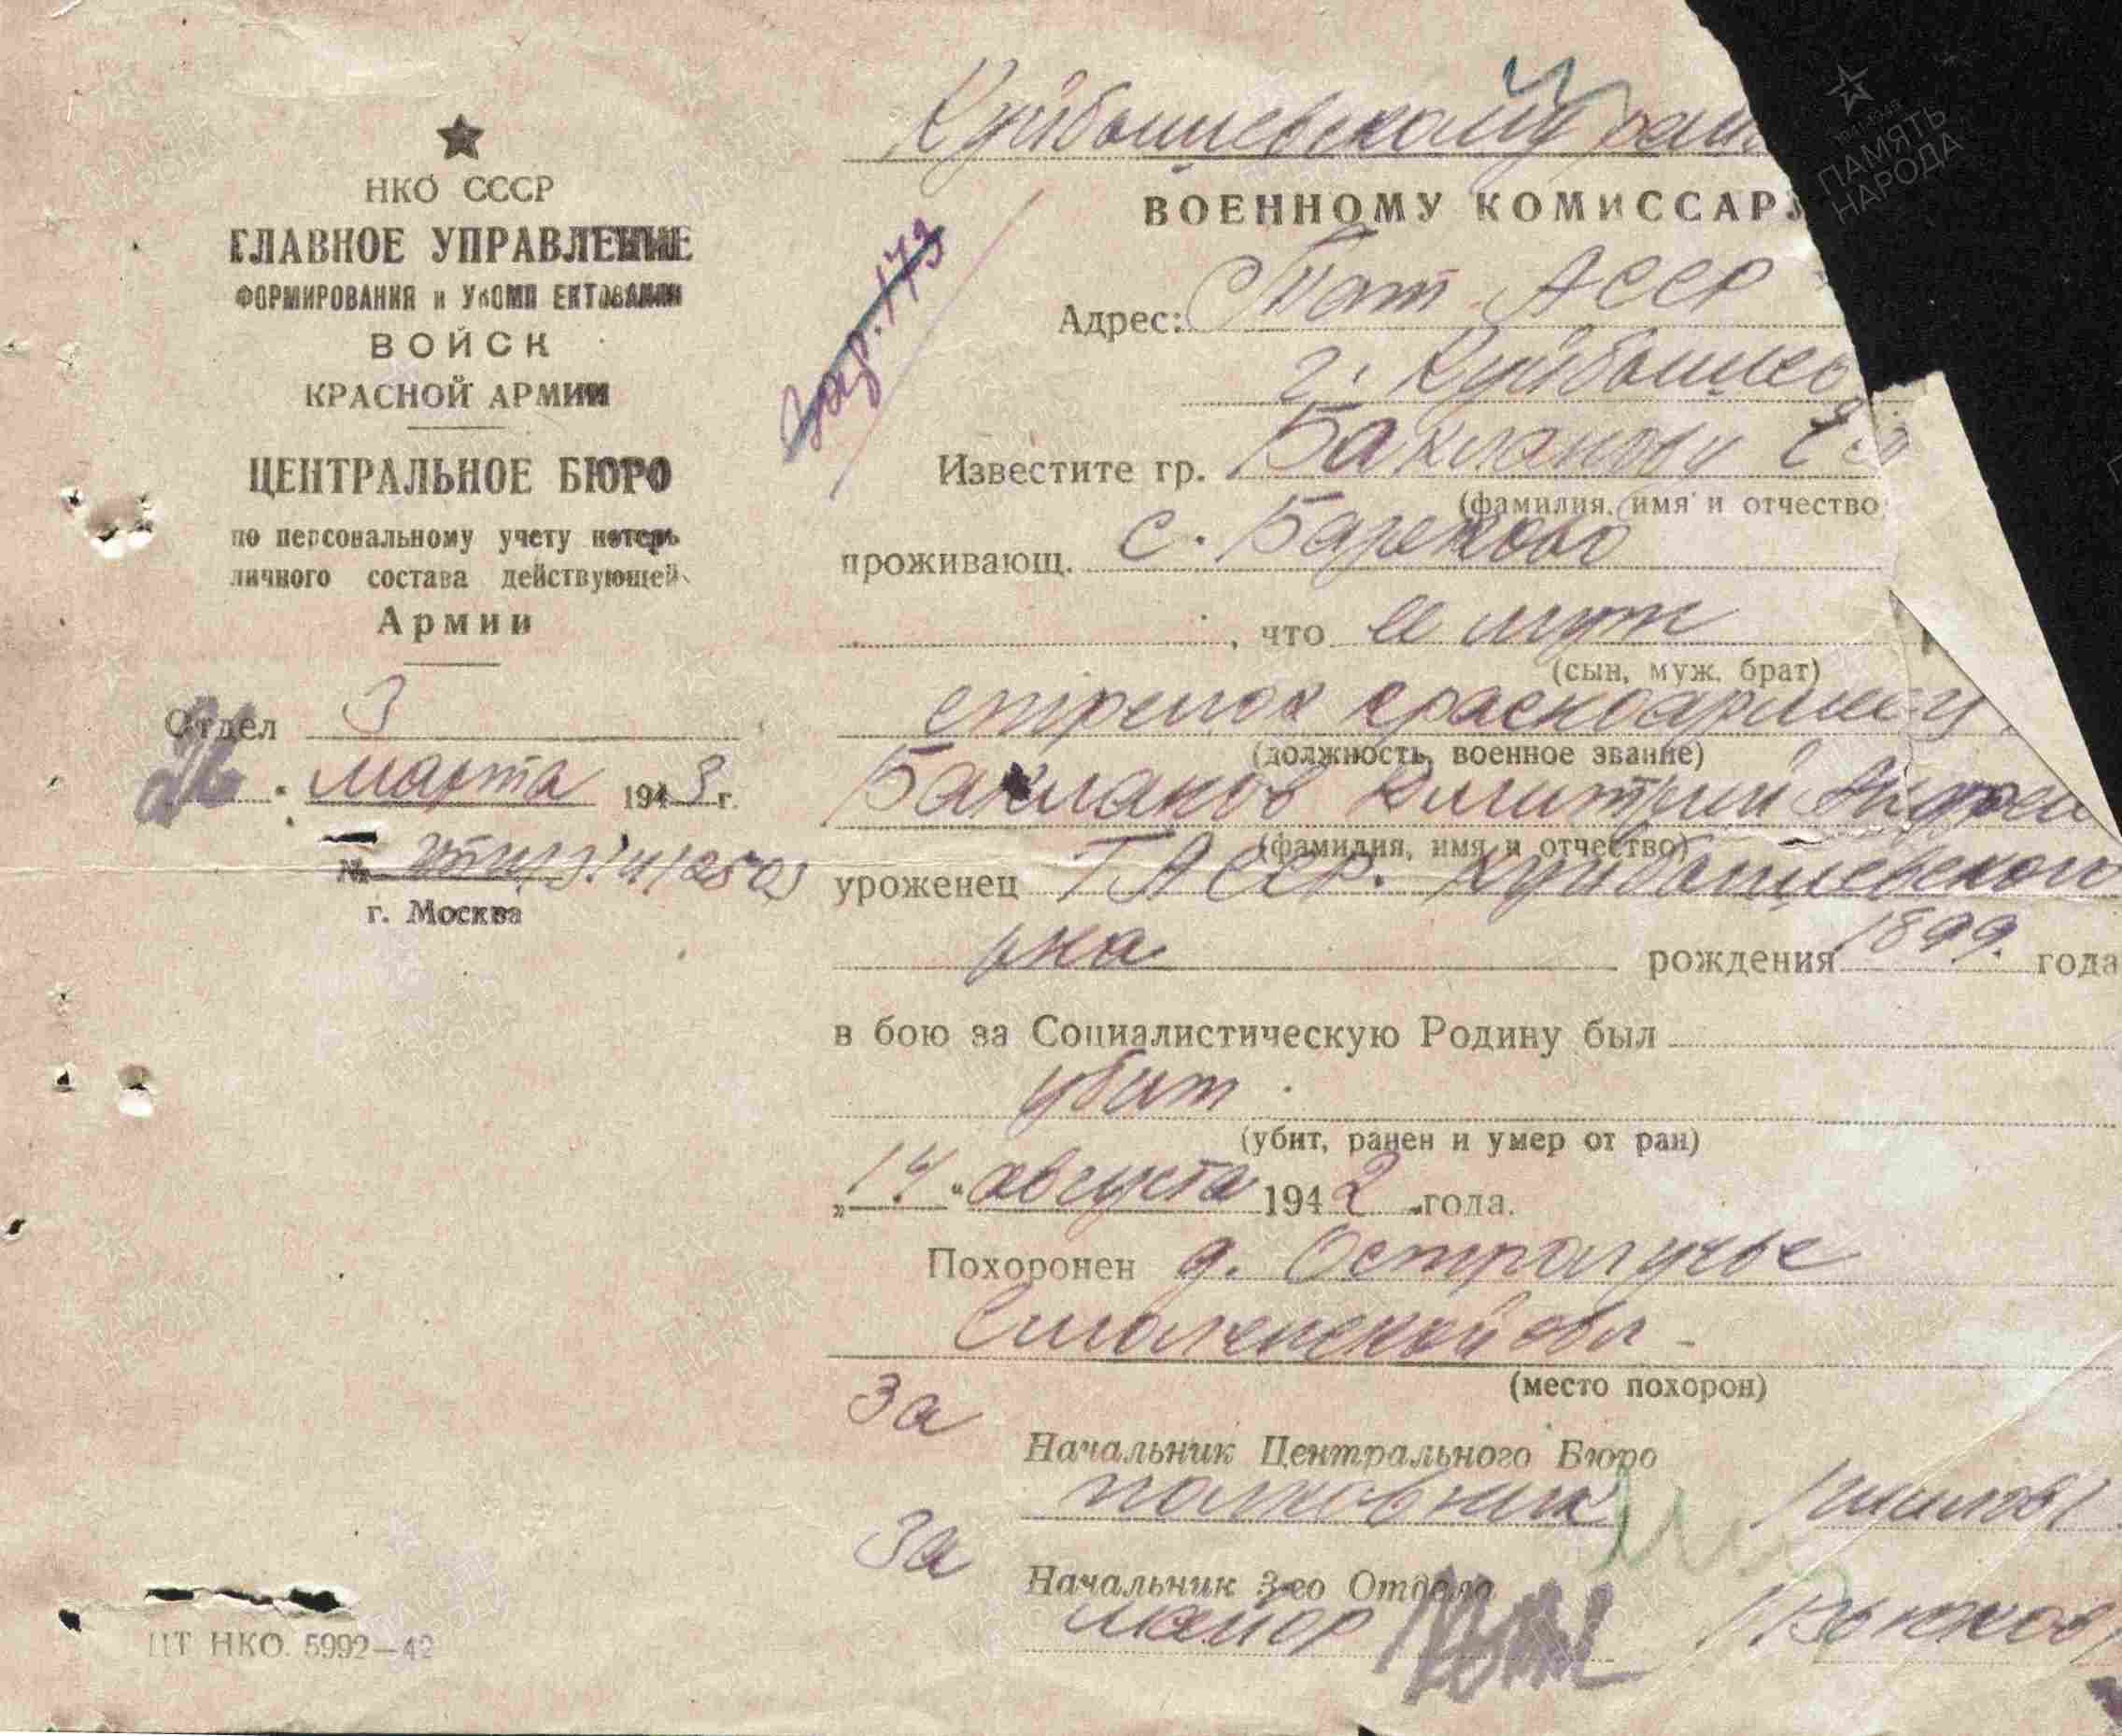 НКО СССР
ГЛАВНОЕ УПРАВЛЕНИЕ
ФОРМИРОВАНИЯ и УКОМП ЕКТОВАНИЯ
ВОЙСК
КРАСНОЙ АРМИИ
ЦЕНТРАЛЬНОЕ БЮРО
по персональному учету потерь
личного состава действующей
Армии
Отдел 3
26 марта 1943 г.
№
г. Москва
зав. 173
Куйбышевскому
ВОЕННОМУ КОМИССАР
Адрес: Тат АССР
г. Куйбышев
Известите гр. Баклановы
(фамилия, имя и отчество
проживающ. с.
, что ее муж
(сын, муж, брат)
стрелок красноармеец
(должность, военное звание)
Бакланов Дмитрий Андрее
(фамилия, имя и отчество)
уроженец ТАССР. Куйбышевского
рна рождения 1899. года
в бою за Социалистическую Родину был
убит
(убит, ранен и умер от ран)
„14“ августа 1942 года.
Похоронен д. Остролучье
Смоленской обл -
(место похорон)
За
Начальник Центрального Бюро
полковник /Шилов/
За
Начальник 3-го Отдела
майор
ЦТ НКО. 5992—42
ПАМЯТЬ
НАРОДА